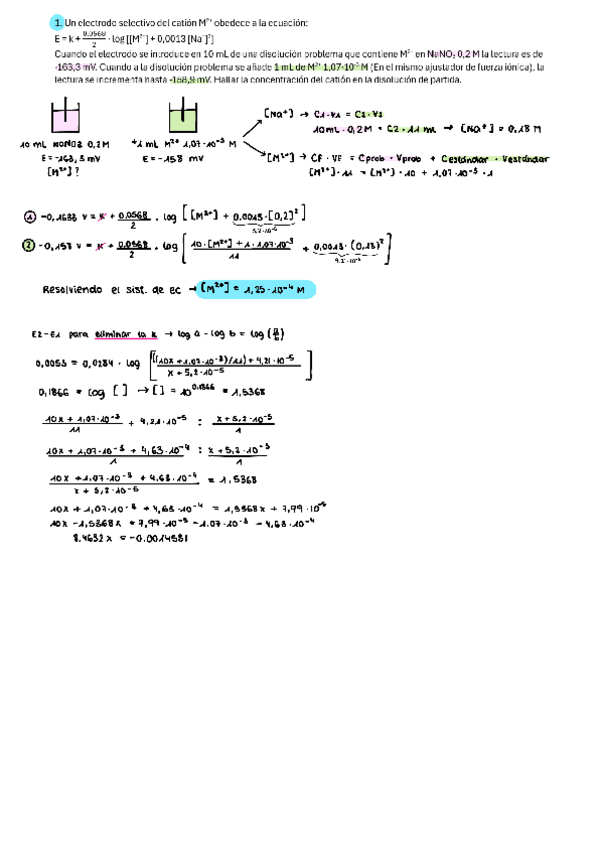 1. Un electrodo selectivo del catión M²⁺ obedece a la ecuación:
E = k + 0,0568/2 · log [[M²⁺] + 0,0013 [Na⁺]²]
Cuando el electrodo se introduce en 10 mL de una disolución problema que contiene M²⁺ en NaNO₃ 0,2 M la lectura es de
-163,3 mV. Cuando a la disolución problema se añade 1 mL de M²⁺ 1,07·10⁻³ M (En el mismo ajustador de fuerza iónica), la
lectura se incrementa hasta -158,9 mV. Hallar la concentración del catión en la disolución de partida.
[Na⁺] → C1·V1 = C2·V2
10 mL · 0,2 M = C2 · 11 mL → [Na⁺] = 0,18 M
10 mL NaNO3 0,2 M
E = -163,3 mV
[M²⁺]?
+1 mL M²⁺ 1,07·10⁻³ M
E = -158 mV
[M²⁺] → CF · VF = Cprob · Vprob + Cestándar · Vestándar
[M²⁺] · 11 = [M²⁺] · 10 + 1,07·10⁻³ · 1
1 -0,1633 V = K + 0,0568/2 · log [[M²⁺] + 0,0013·[0,2]²]
5,2·10⁻⁵
2 -0,158 V = K + 0,0568/2 · log [10·[M²⁺] + 1·1,07·10⁻³/11 + 0,0013·(0,18)²]
4,21·10⁻⁵
Resolviendo el sist. de EC → [M²⁺] = 1,25·10⁻⁴ M
E2-E1 para eliminar la K → log a - log b = log (a/b)
0,0053 = 0,0284 · log [((10x + 1,07·10⁻³)/11) + 4,21·10⁻⁵/x + 5,2·10⁻⁵]
0,1866 = log [ ] → [ ] = 10^0,1866 = 1,5368
10x + 1,07·10⁻³/11 + 4,21·10⁻⁵ : x + 5,2·10⁻⁵/1
10x + 1,07·10⁻³ + 4,63·10⁻⁴/1 : x + 5,2·10⁻⁵/1
10x + 1,07·10⁻³ + 4,63·10⁻⁴/x + 5,2·10⁻⁵ = 1,5368
10x + 1,07·10⁻³ + 4,63·10⁻⁴ = 1,5368x + 7,99·10⁻⁵
10x - 1,5368x = 7,99·10⁻⁵ - 1,07·10⁻³ - 4,63·10⁻⁴
8,4632x = -0,0014531